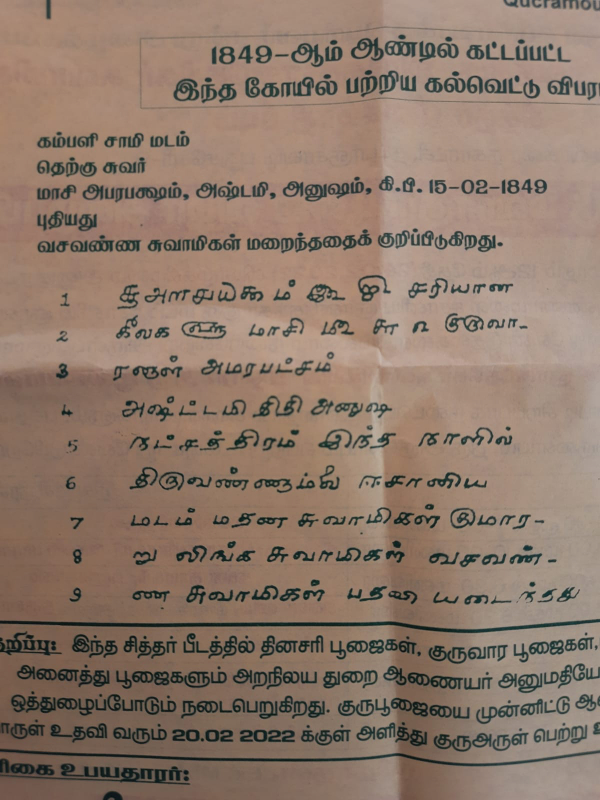 1849-ஆம் ஆண்டில் கட்டப்பட்ட
இந்த கோயில் பற்றிய கல்வெட்டு விபர
கம்பளி சாமி மடம்
தெற்கு சுவர்
மாசி அபரபக்ஷம், அஷ்டமி, அனுஷம், கி.பி. 15-02-1849
புதியது
வசவண்ண சுவாமிகள் மறைந்ததைக் குறிப்பிடுகிறது.
1 சரியான
2 கீலக மாசி
3 அமரபட்சம்
4 அஷ்ட்டமி திதி அனுஷ
5 நட்சத்திரம் இந்த நாளில்
6 ஈசானிய
7 மடம் மதன சுவாமிகள் குமார-
8 று லிங்க சுவாமிகள் வசவண்-
9 ண சுவாமிகள் பதவி யடைந்தது
குறிப்பு: இந்த சித்தர் பீடத்தில் தினசரி பூஜைகள், குருவார பூஜைகள்,
அனைத்து பூஜைகளும் அறநிலய துறை ஆணையர் அனுமதியோ
ஒத்துழைப்போடும் நடைபெறுகிறது. குருபூஜையை முன்னிட்டு
பொருள் உதவி வரும் 20.02 2022 க்குள் அளித்து குருஅருள் பெற்று
உபயதாரர்: